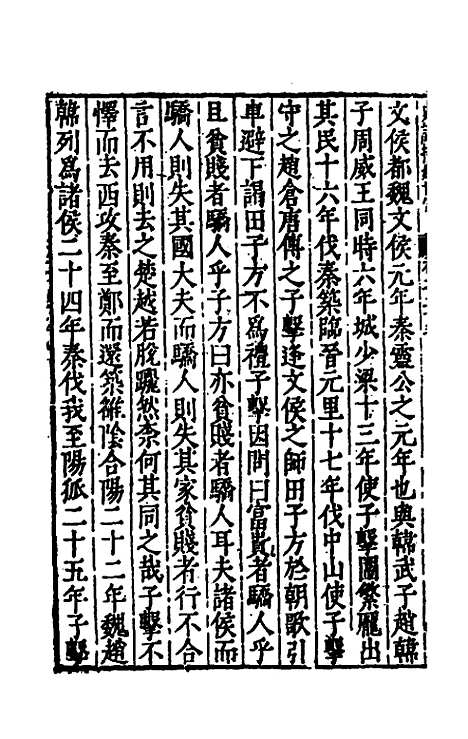 文侯都魏文侯元年秦靈公之元年也與韓武子趙韓
子周威王同時六年城少梁十三年使子擊圍繁龐出
其民十六年伐秦築臨晉元里十七年伐中山使子擊
守之趙倉唐傅之子擊逢文侯之師田子方於朝歌引
車避下謁田子方不爲禮子擊因問曰富貴者驕人乎
且貧賤者驕人乎子方曰亦貧賤者驕人耳夫諸侯而
驕人則失其國大夫而驕人則失其家貧賤者行不合
言不用則去之楚越若脫躧然柰何其同之哉子擊不
懌而去西攻秦至鄭而還築雒陰合陽二十二年魏趙
韓列爲諸侯二十四年秦伐我至陽狐二十五年子擊